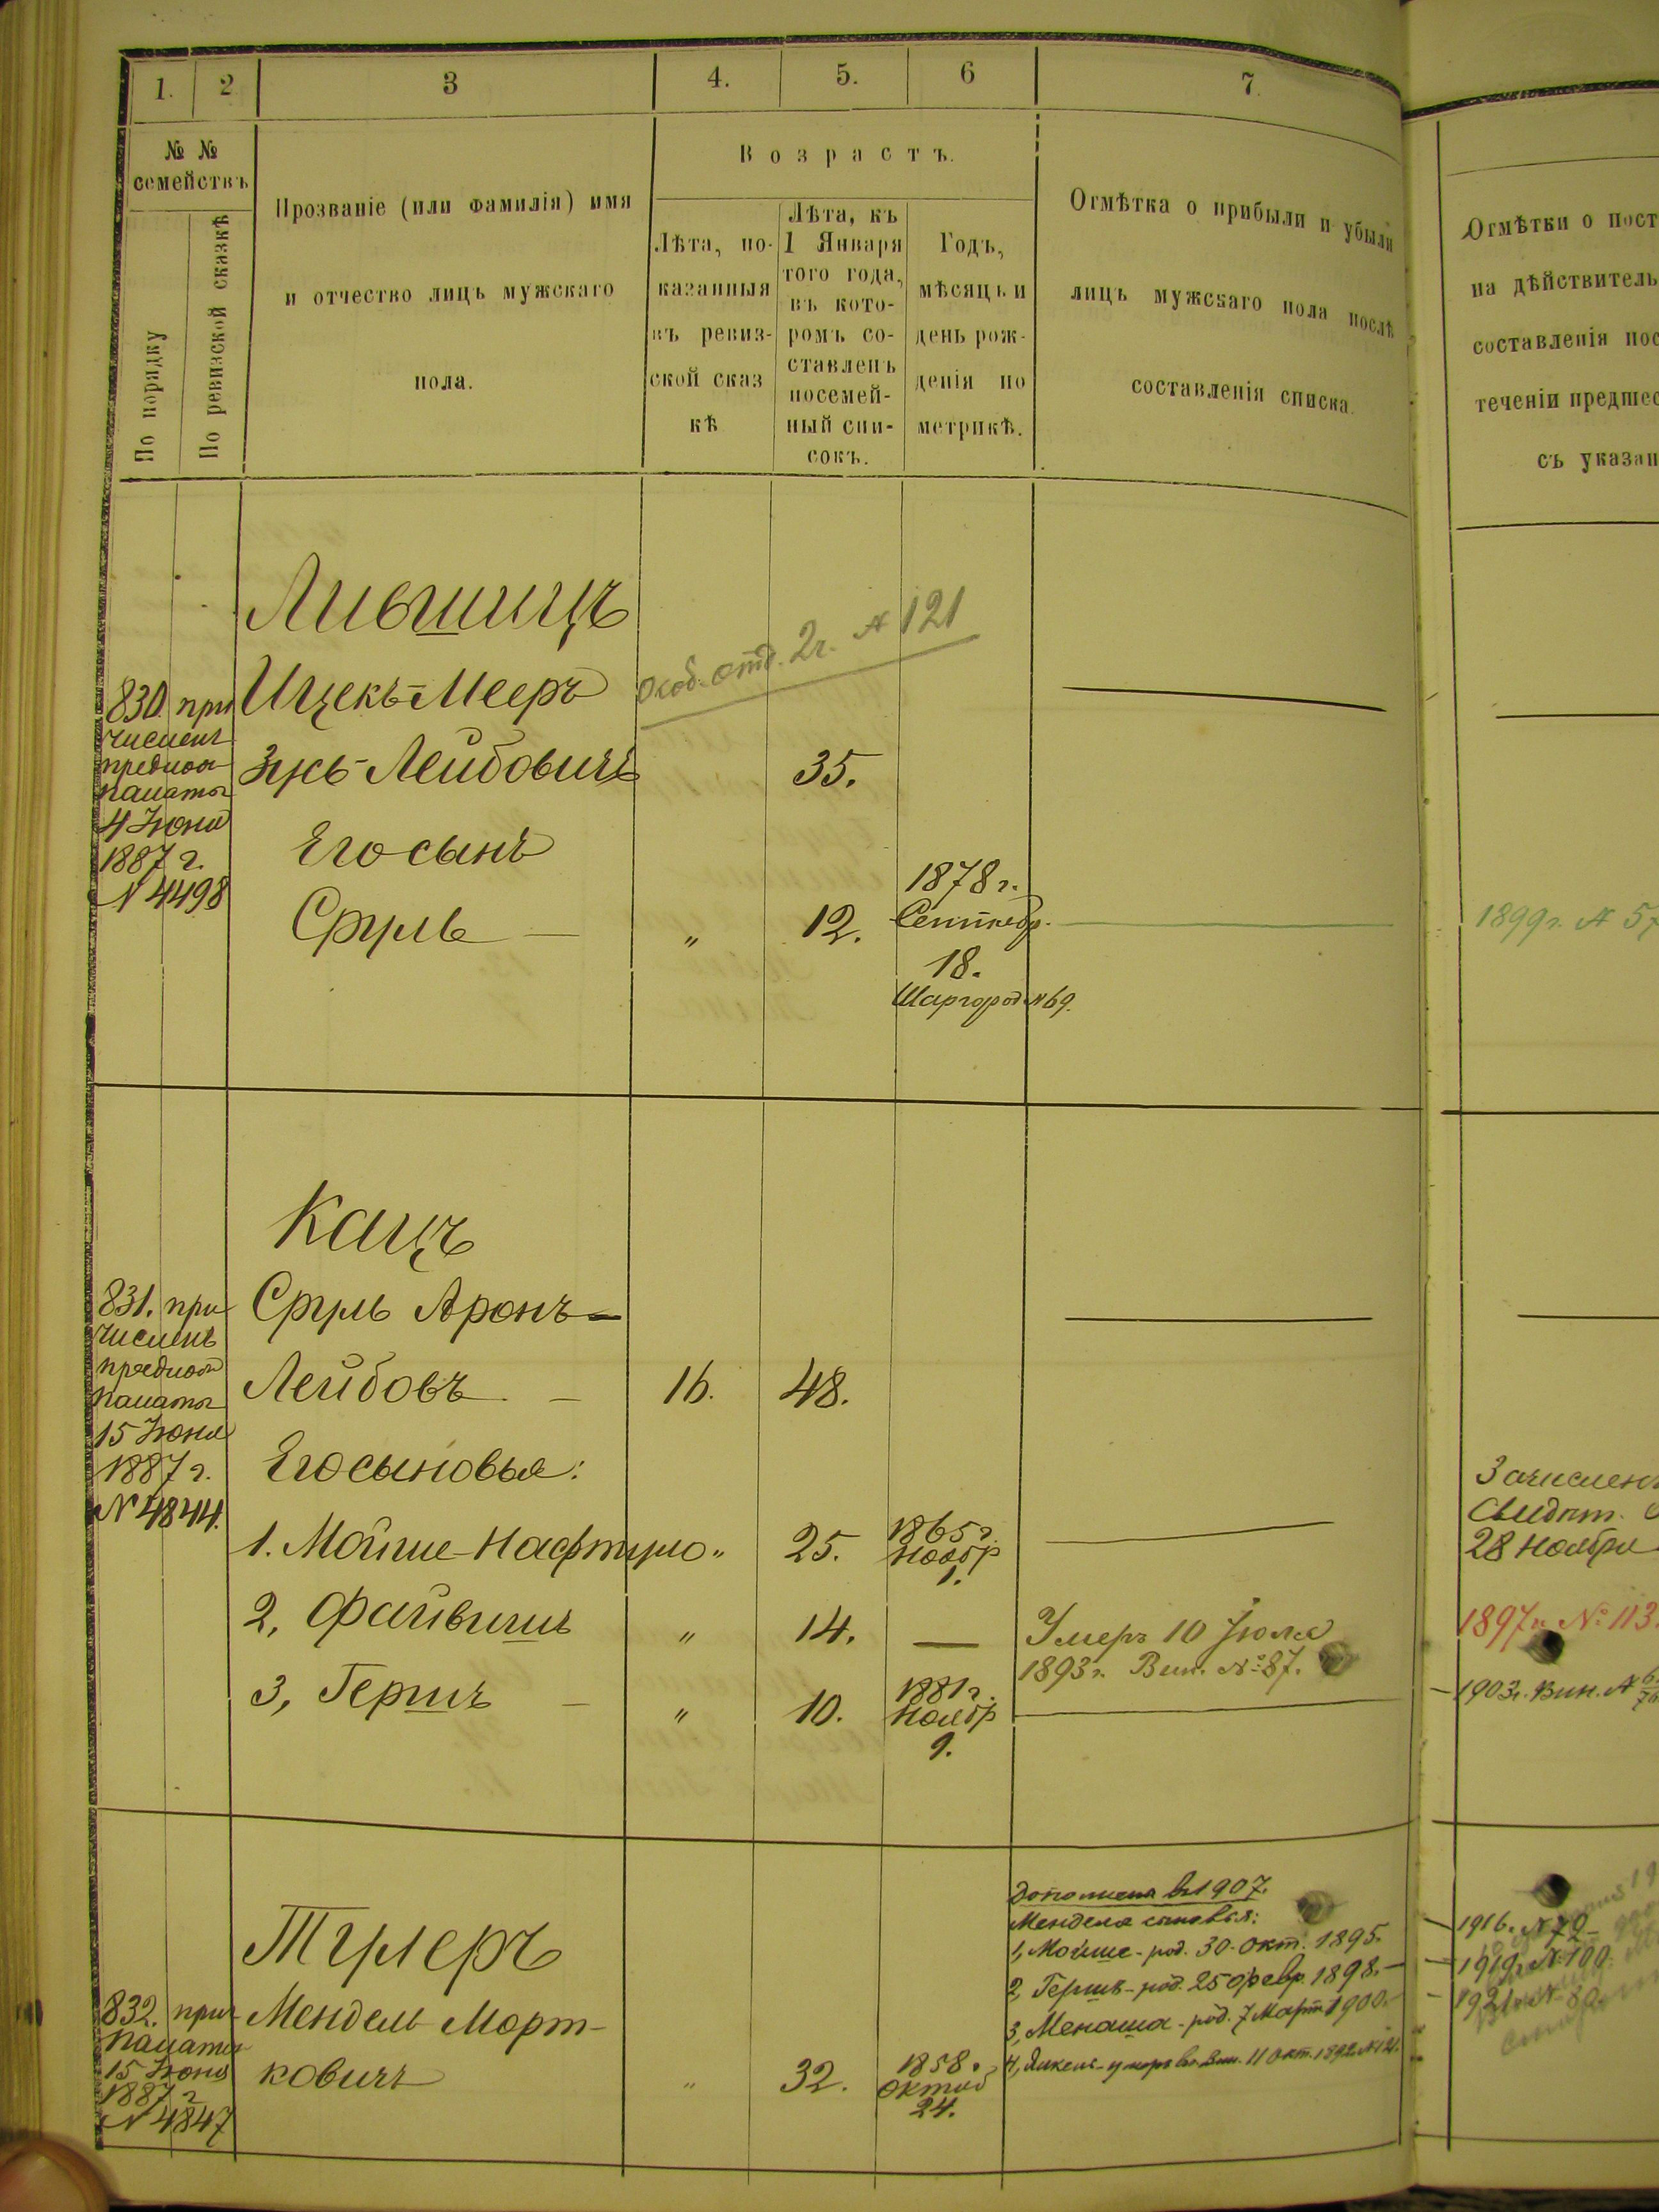 1. 2 3 4. 5. 6 7
№ № семействъ
По порядку
По ревизской сказкѣ
Прозваніе (или фамилія) имя
и отчество лицъ мужскаго
пола.
Возрастъ.
Лѣта, по-
казанныя
въ ревиз-
ской сказ
кѣ
Лѣта, къ
1 Января
того года,
въ кото-
ромъ со-
ставленъ
посемей-
ный спи-
сокъ.
Годъ,
мѣсяцъ и
день рож-
денія по
метрикѣ.
Отмѣтка о прибыли и убыли
лицъ мужскаго пола послѣ
составленія списка.
Отмѣтки о пост
на дѣйствитель
составленія пос
теченіи предшес
съ указан
Лившицъ
Особ. отд. 2 ч. № 121
830. при
численъ
предлож
палаты
4 Іюня
1887 г.
№ 4498
Ицекъ-Мееръ
Зусь-Лейбовичъ 35.
Его сынъ
Сруль — " 12.
1878 г.
Сентябр.
18.
Шаргород № 69.
1899 г. № 57
Кацъ
831. при
численъ
предлож
палаты
15 Іюня
1887 г.
№ 4844.
Сруль Аронъ-
Лейбовъ — 16. 48.
Его сыновья:
1. Мойше-Нафтуло " 25. 1865 г.
Ноябр
1.
Зачисленъ
Свидѣт.
28 Ноября
2, Файвишъ " 14. —
Умеръ 10 Іюля
1893 г. Вин. № 87.
1897 г. № 113.
3, Гершъ — " 10. 1881 г.
Ноябр
9.
1903 г. Вин. №
Тулеръ
832. прич
палаты
15 Іюня
1887 г
№ 4847
Мендель Морт-
ковичъ " 32. 1858 г.
Октяб
24.
Дополнена въ 1907.
Менделя сыновья:
1, Мойше - род. 30 Окт. 1895.
2, Гершъ - род. 25 Февр. 1898. —
3, Менаша - род. 7 Март 1900. —
4, Янкель - умеръ въ Вин. 11 Окт. 1892 № 121.
1916 г. № 72
1919 г. № 100.
1921 г. № 80